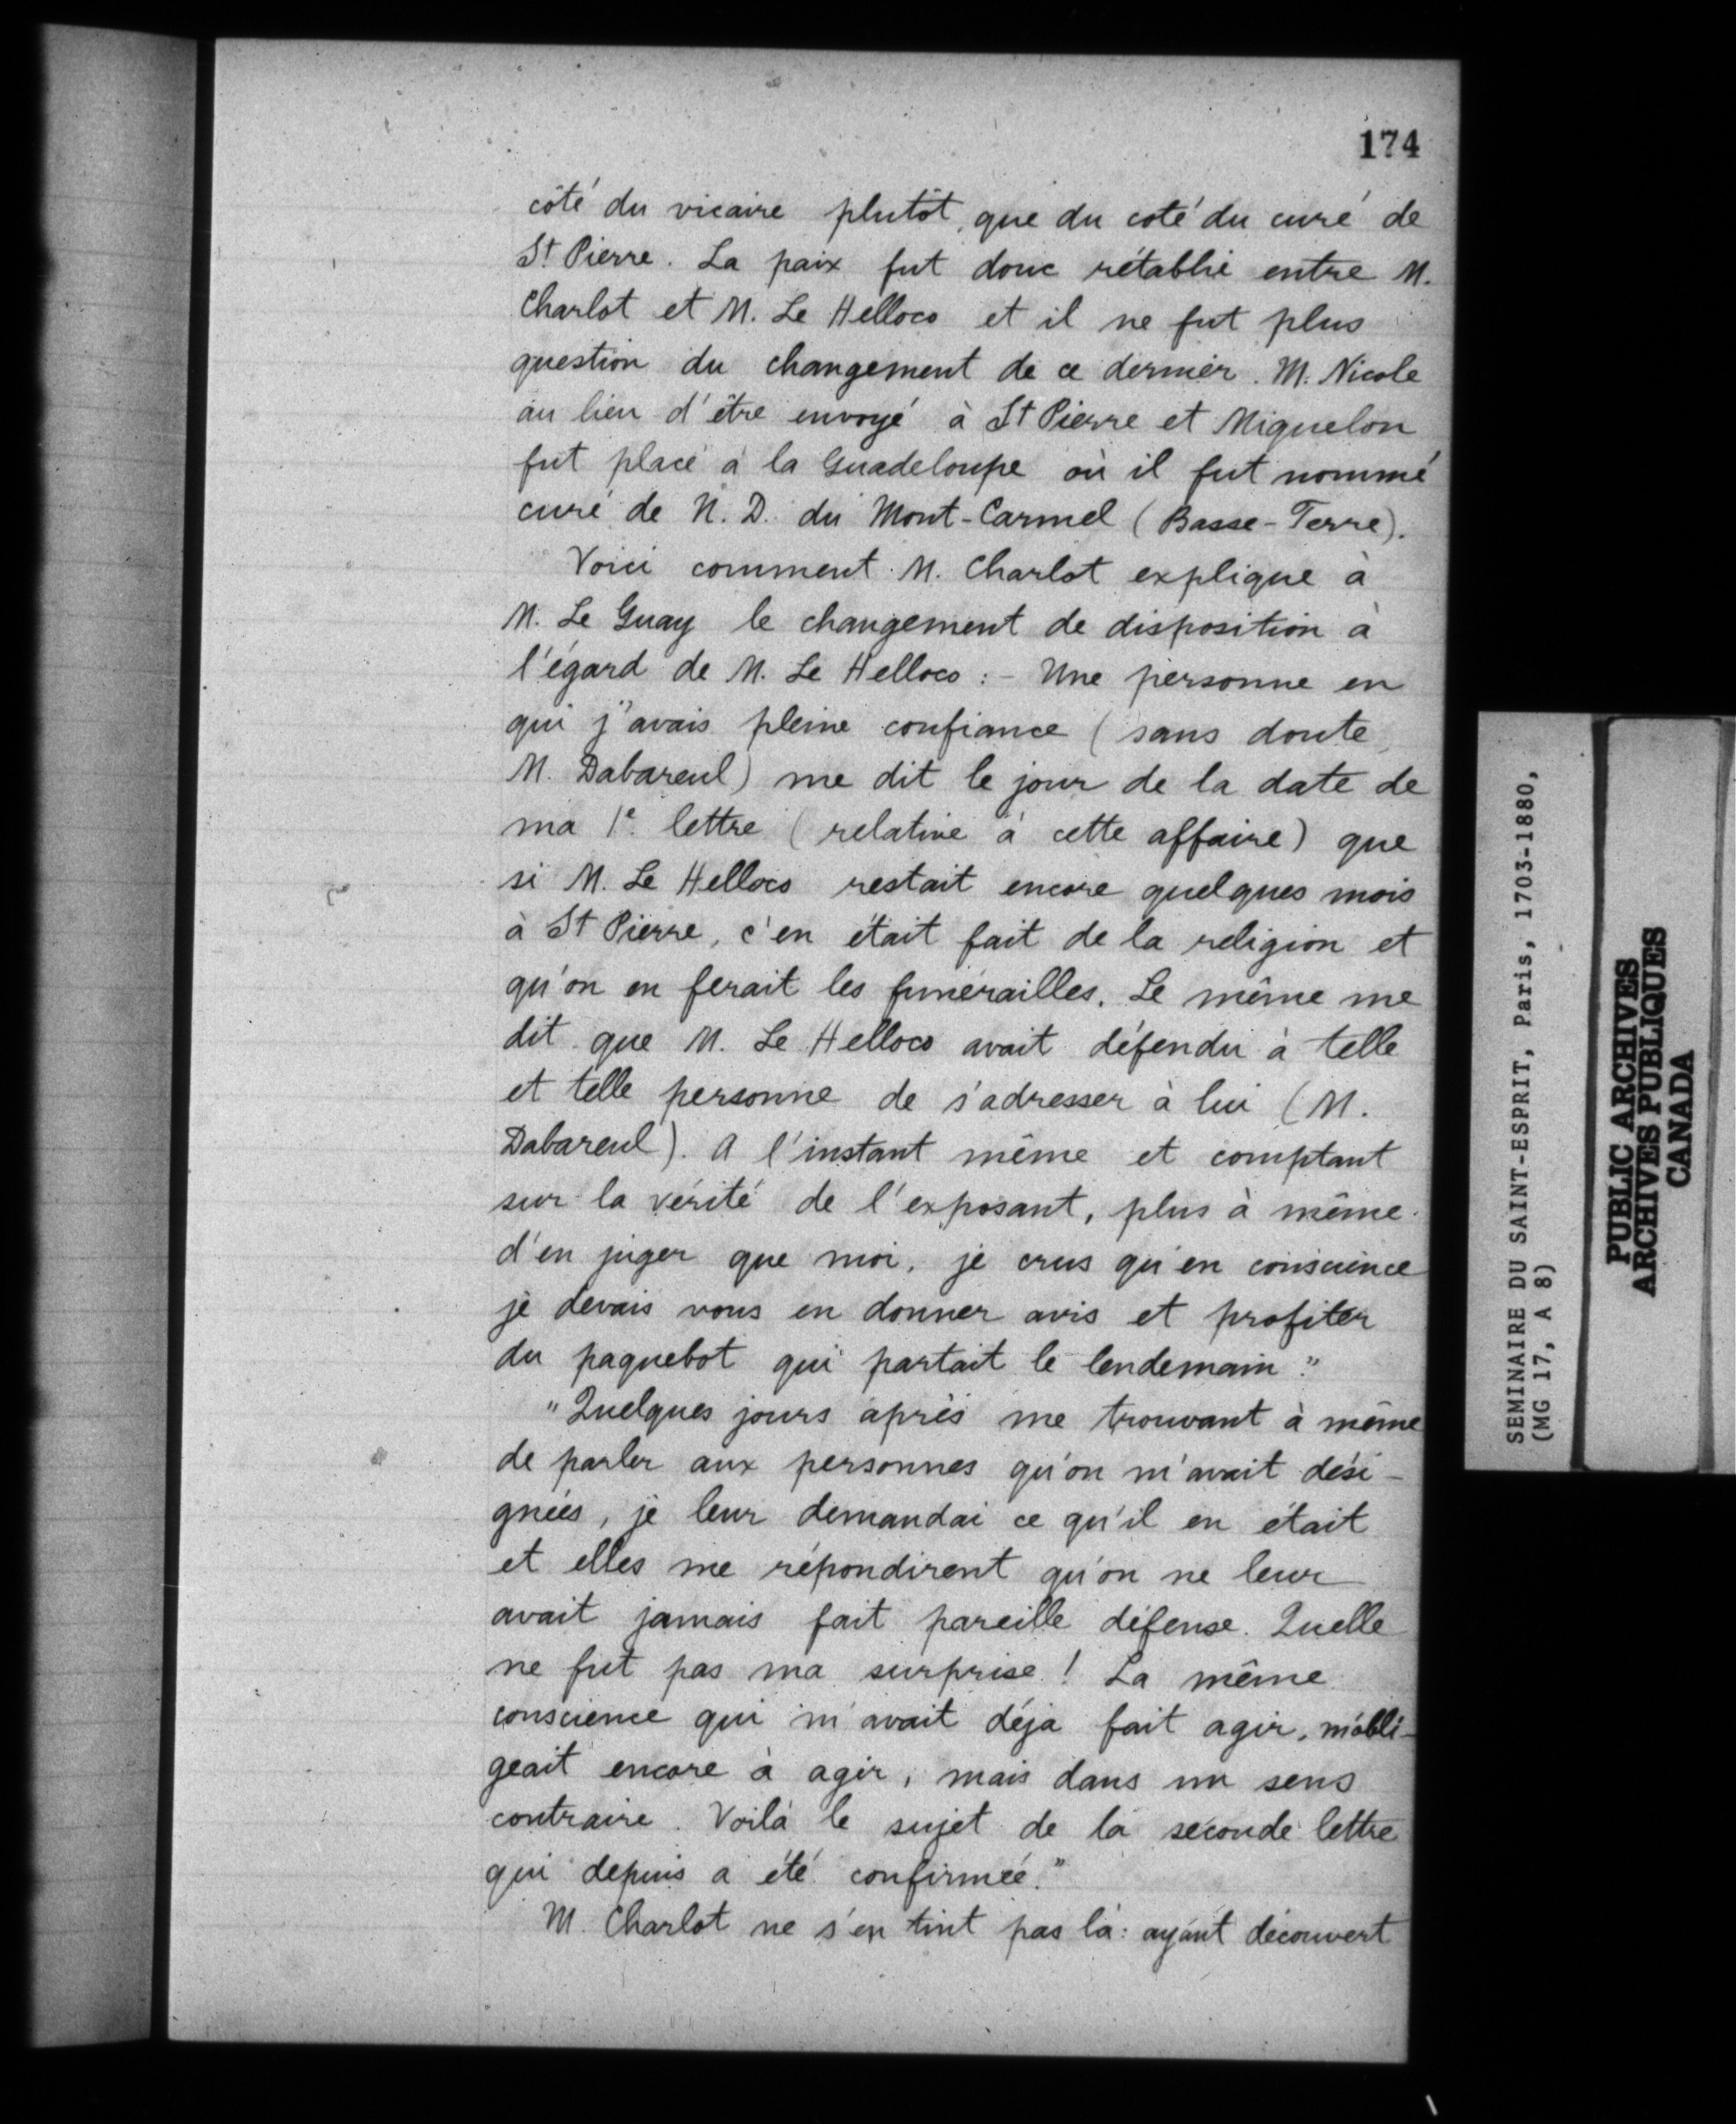 174
côté du vicaire plutôt, que du coté du curé de
St Pierre. La paix fut donc rétablie entre M.
Charlot et M. Le Helloco et il ne fut plus
question du changement de ce dernier. M. Nicole
au lieu d'être envoyé à St Pierre et Miquelon
fut placé à la Guadeloupe où il fut nommé
curé de N. D. du Mont-Carmel (Basse-Terre).
Voici comment M. Charlot explique à
M. Le Guay le changement de disposition à
l'égard de M. Le Helloco : - Une personne en
qui j'avais pleine confiance (sans doute,
M. Dabareul) me dit le jour de la date de
ma 1e lettre (relative à cette affaire) que
si M. Le Helloco restait encore quelques mois
à St Pierre, c'en était fait de la religion et
qu'on en ferait les funérailles. Le même me
dit que M. Le Helloco avait défendu à telle
et telle personne de s'adresser à lui (M.
Dabareul). A l'instant même et comptant
sur la vérité de l'exposant, plus à même
d'en juger que moi, je crus qu'en conscience
je devais vous en donner avis et profiter
du paquebot qui partait le lendemain."
"Quelques jours après me trouvant à même
de parler aux personnes qu'on m'avait dési-
gnées, je leur demandai ce qu'il en était
et elles me répondirent qu'on ne leur
avait jamais fait pareille défense. Quelle
ne fut pas ma surprise ! La même
conscience qui m'avait déja fait agir, m'obli-
geait encore à agir, mais dans un sens
contraire. Voilà le sujet de la seconde lettre
qui depuis a été confirmée."
M. Charlot ne s'en tint pas là : ayant découvert
SEMINAIRE DU SAINT-ESPRIT, Paris, 1703-1880,
(MG 17, A 8)
PUBLIC ARCHIVES
ARCHIVES PUBLIQUES
CANADA